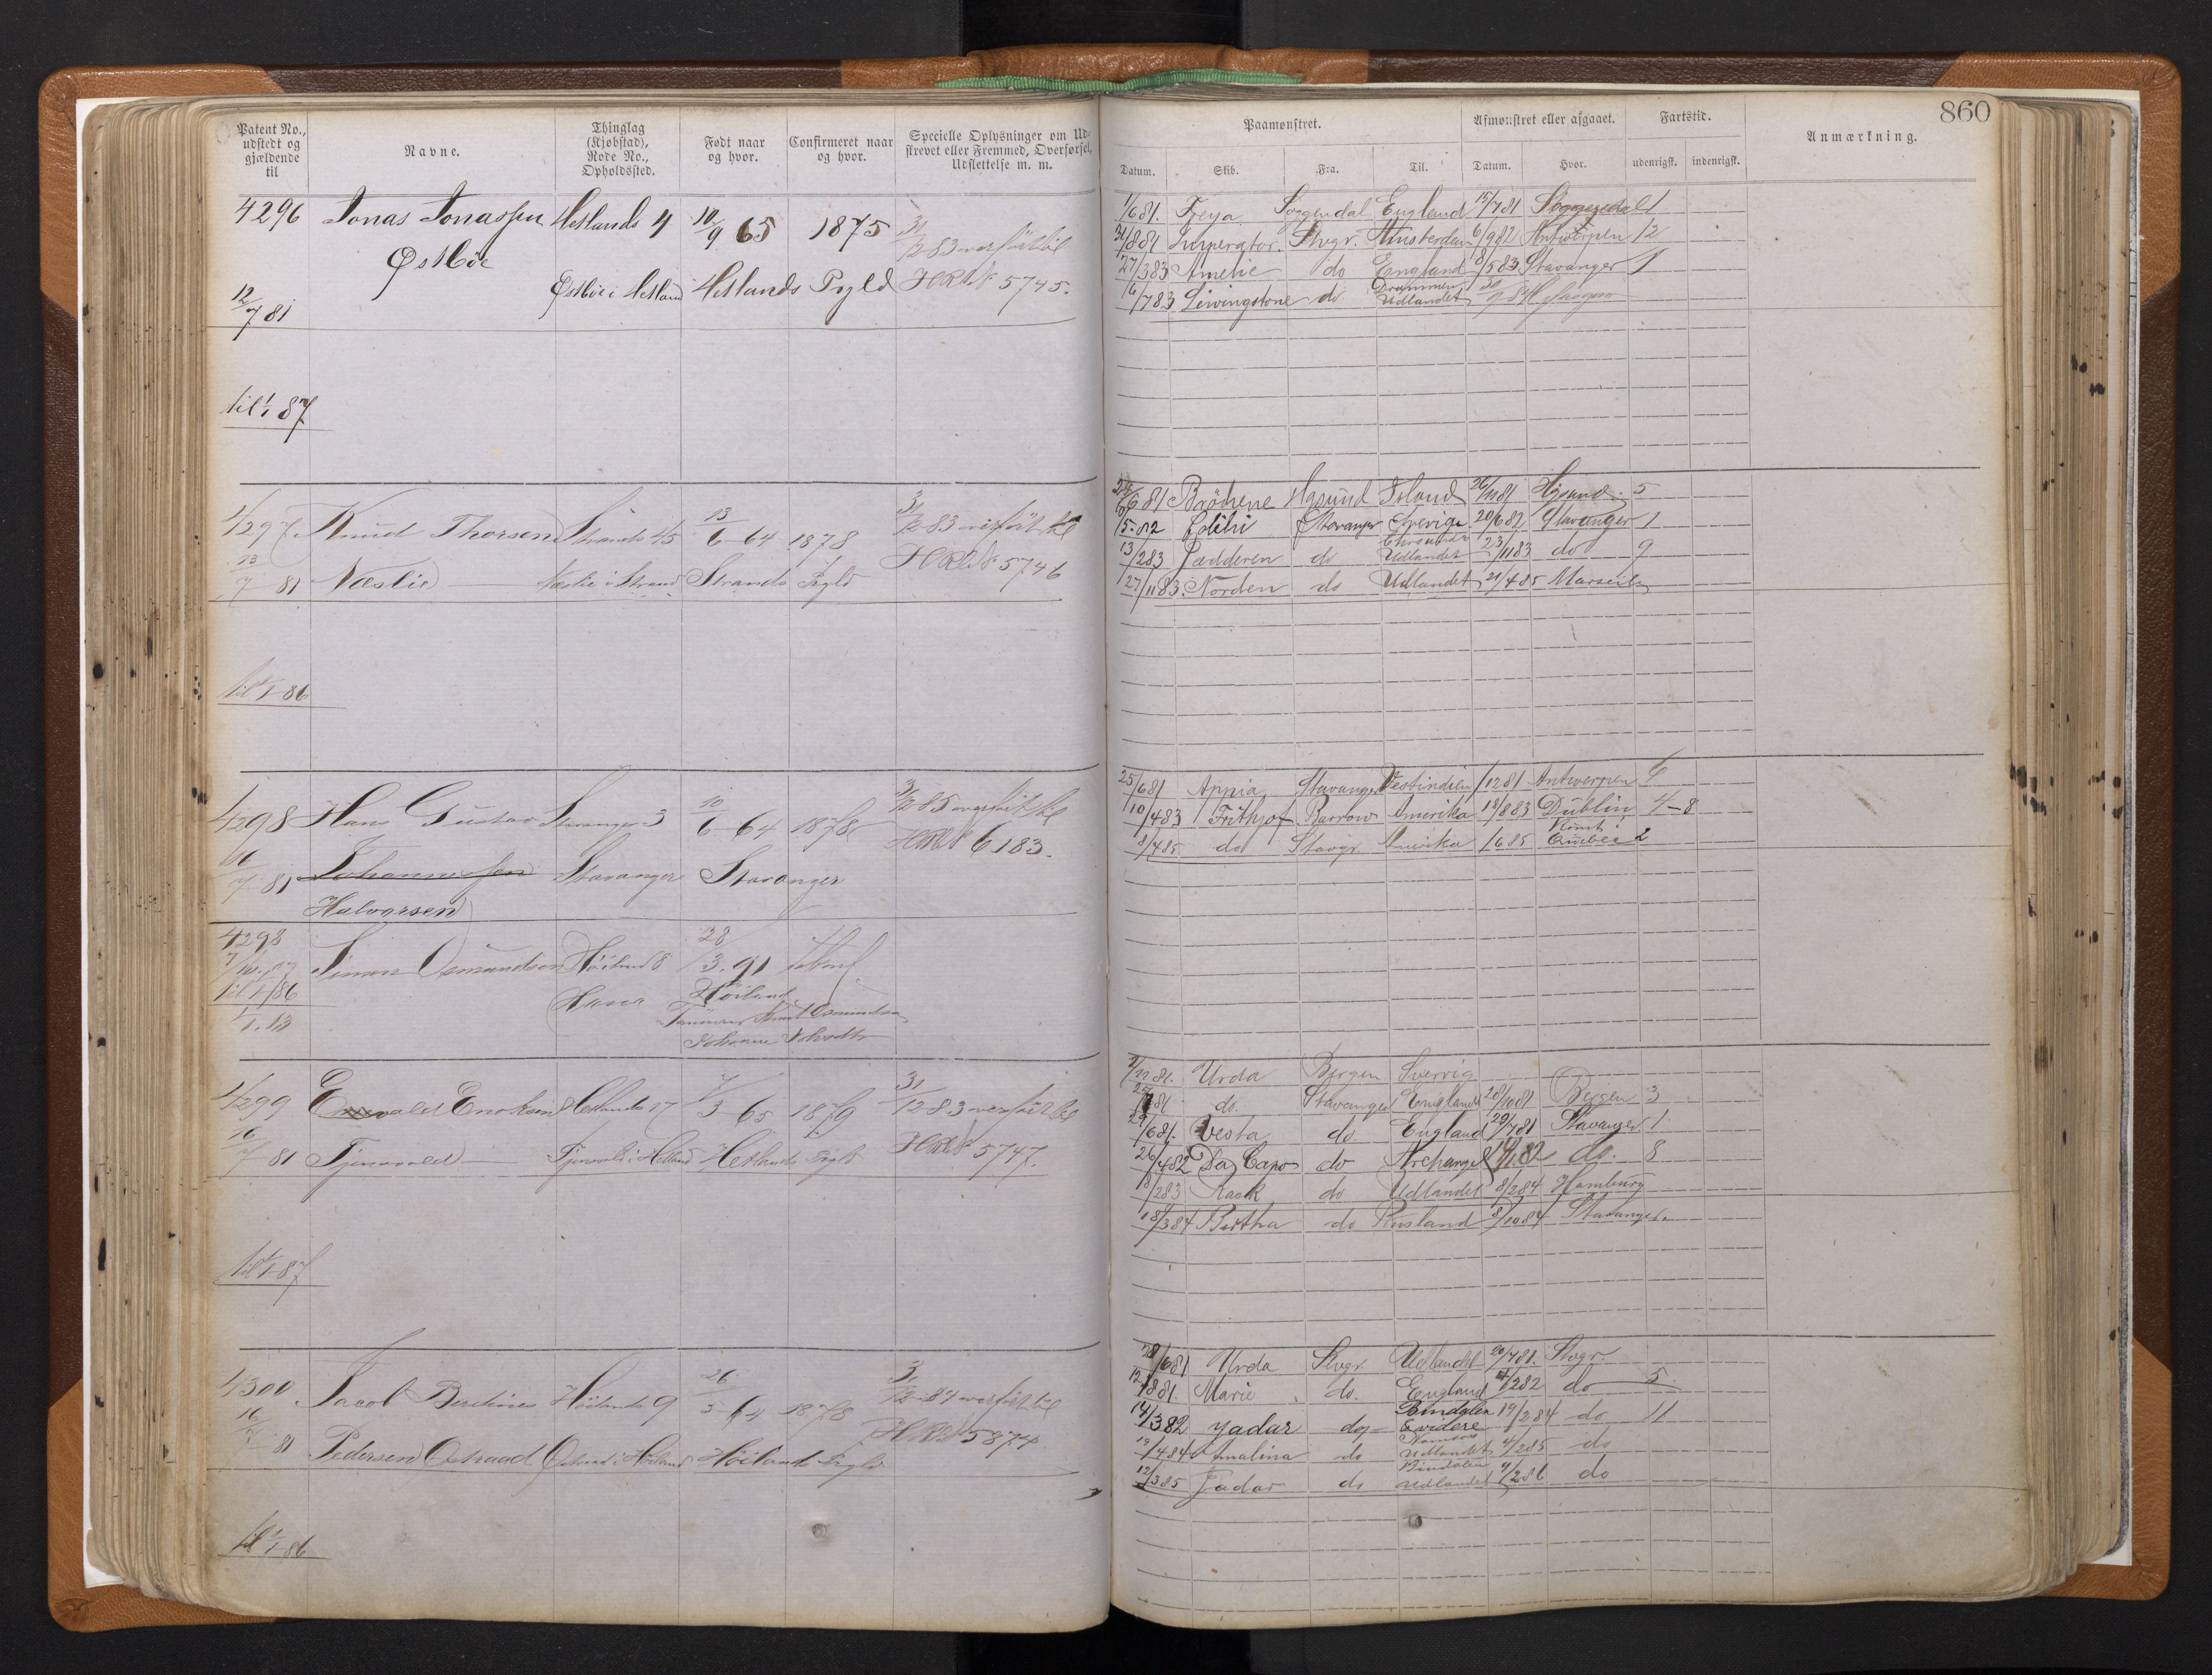 860
Patent No., udstedt og gjældende til
Navne.
Thinglag (Kjøbstad), Rode No., Opholdssted.
Født naar og hvor.
Confirmeret naar og hvor.
Specielle Oplysninger om Udskrevet eller Fremmed, Overførsel, Udslettelse m. m.
Paamønstret.
Afmønstret eller afgaaet.
Fartstid.
Anmærkning.
Datum. Skib. Fra. Til. Datum. Hvor. udenrigsk. indenrigsk.
4296 Jonas Jonassen Hetlands 4 10/9 65 1875 31/12 83 overført til
Østbøe
Østbøe i Hetland Hetlands Pgld HRL № 5745.
12/7 81
til 1/1 87
1/6 81. Freya Soggendal England 15/7 81 Soggendal 1
Imperator. Stvgr. Amsterdam 6/9 82 Antwerpen 12
27/3 83 Amelie do England 8/5 83 Stavanger 1
16/7 83 Liwingstone do. Drammen Udlandet
4297 Knud Thorsen Strands 45 13/6 64 1878 31/12 83 overført til
23/7 81 Næslie Næslie i Strand Strands Pgld HRL № 5746
til 1/1 86
24/6 81 Brödrene Hgsund Island 26/11 81 Hgsund. 5
Stavanger Sverige 20/6 82 Stavanger 1
13/2 83 Jædderen do Udlandet 23/11 83 do 9
27/11 83. Norden do Udlandet 21/4 85 Marseille
4298 Hans Gustav Stavanger 3 10/6 64 1878 31/12 85 overført til
HRL № 6183.
7 81 Johannessen Stavanger Stavanger
Halvorsen
25/6 81 Appia Stavanger Vestindien /12 81 Antwerpen 6
10/4 83 Frithjof Barrow Amerika 18/8 83 Dublin 4-8
8/4 85 do Stavgr. Amerika /6 85 Rømt i Quebec 2
4298 Simon Osmundsen Høiland 8 28/3. 91
til 1/1 86
Høiland
1/1. 13
Osmundsen
4299 Enevald Enoksen Hetlands 17 7/3 65 1879 31/12 83 overført til
16/7 81 Tjensvold Tjensvold i Hetland Hetlands Pgld HRL № 5747.
til 1/1 87
Urda Bergen Sverrig
do. Stavanger England 28/10 81 Bergen 3
Vesta do. England 29/7 81 Stavanger. 1
26/4 82 Da Capo do Archangel do. 8
8/2 83 Rask do Udlandet 8/2 84 Hamburg
18/3 84 Bertha do Rusland 8/10 84 Stavanger.
4300 Jacob Berdines Høilands 9 26/5 64 1878 31/12 84 overført til
16/7 81 Pedersen Ostraad Ostraad i Høiland Høilands Pgld HRL № 5874
til 1/1 86
28/6 81 Urda Stvgr. Udlandet 20/7 81. Stvgr.
12/8 81. Marie do. England 4/2 82 do 5
14/3 82 Jadar do Bindalen &amp; videre 19/2 84 do 11
19/4 84 Amalina do Namsos Udlandet 4/2 85 do
12/3 85 Jadar do Bindalen Udlandet 4/2 86 do